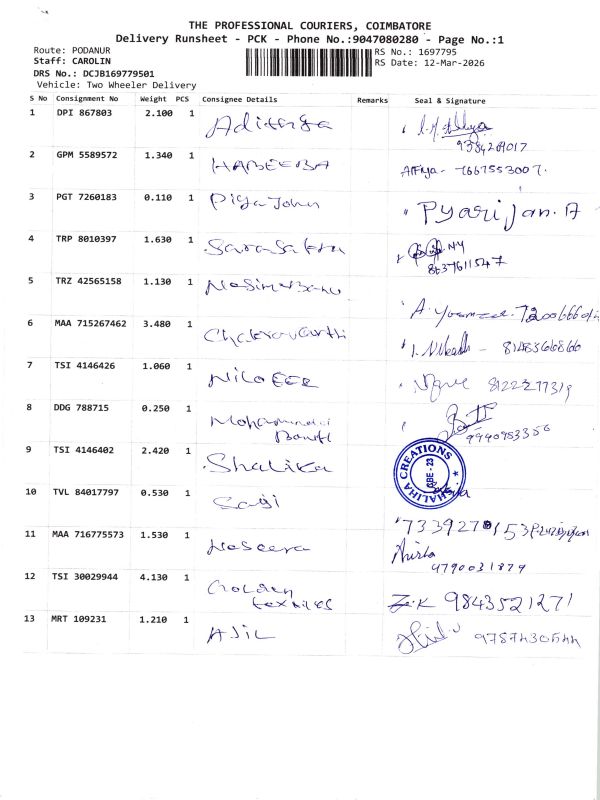 THE PROFESSIONAL COURIERS, COIMBATORE
Delivery Runsheet - PCK - Phone No.:9047080280 - Page No.:1
Route: PODANUR RS No.: 1697795
Staff: CAROLIN RS Date: 12-Mar-2026
DRS No.: DCJB169779501
Vehicle: Two Wheeler Delivery
S No Consignment No Weight PCS Consignee Details Remarks Seal & Signature
1 DPI 867803 2.100 1 Adithya
2 GPM 5589572 1.340 1 HABEEBA Afiya - 7667553007.
3 PGT 7260183 0.110 1 Piya John Pyarijan. A
4 TRP 8010397 1.630 1 8637611547
5 TRZ 42565158 1.130 1
6 MAA 715267462 3.480 1 Chakravarthi
7 TSI 4146426 1.060 1 Nilofer
8 DDG 788715 0.250 1 Mohammed 9940953356
9 TSI 4146402 2.420 1 Shalika SHALIHA CREATIONS
10 TVL 84017797 0.530 1 Saji
11 MAA 716775573 1.530 1 Naseera 4790031879
12 TSI 30029944 4.130 1 Golden textiles 9843521271
13 MRT 109231 1.210 1 AJIL